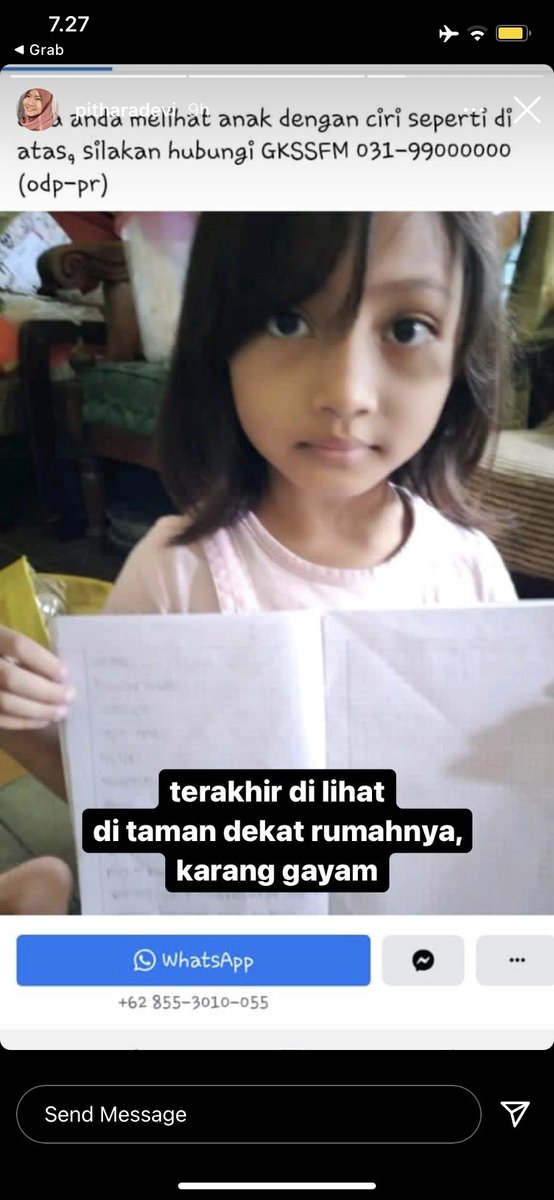 7.27
◀ Grab
pitharadevi 9h
anda melihat anak dengan ciri seperti di
atas, silakan hubungi GKSSFM 031-99000000
(odp-pr)
terakhir di lihat
di taman dekat rumahnya,
karang gayam
WhatsApp
+62 855-3010-055
Send Message